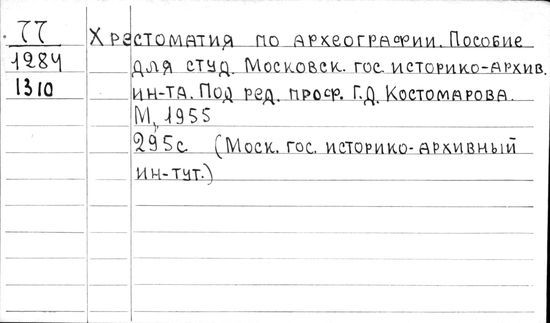 77 Хрестоматия по археографии. Пособие
1984 для студ. Московск. гос. историко-архив.
1310 ин-та. Под ред. проф. Г.Д. Костомарова.
М., 1955
295с (Моск. гос. историко-архивный
ин-тут.)